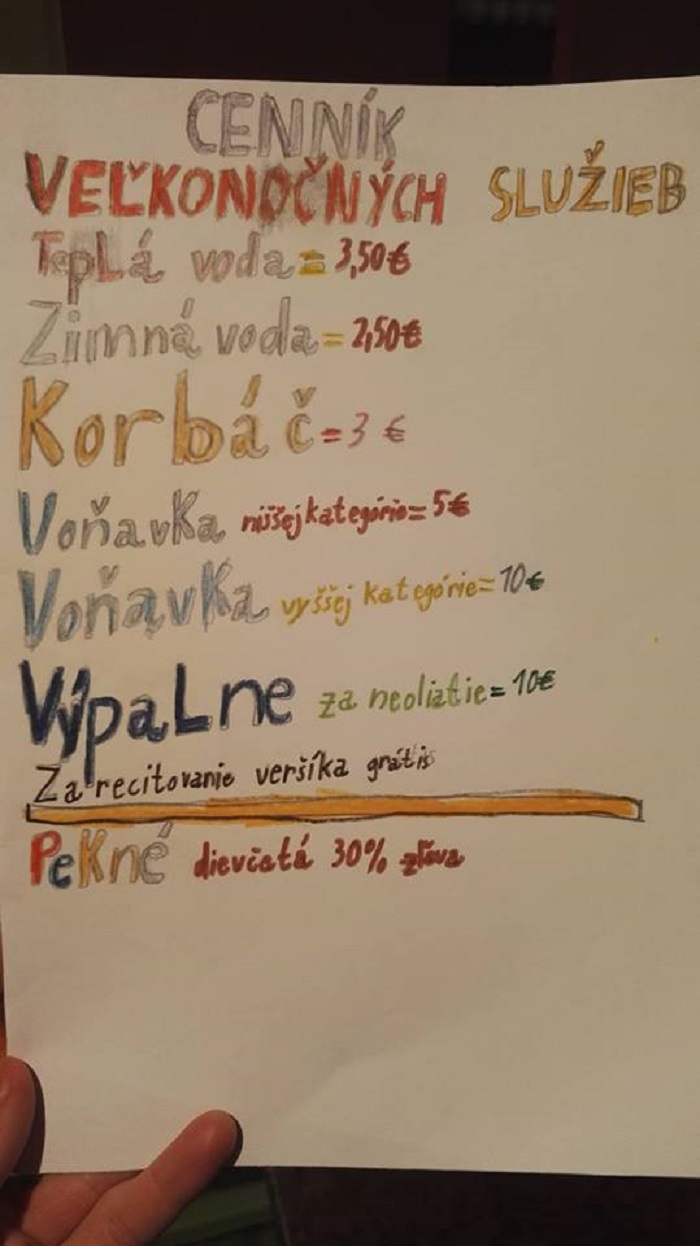 CENNÍK
VEĽKONOČNÝCH SLUŽIEB
Teplá voda = 3,50€
Zimná voda = 2,50€
Korbáč = 3 €
Voňavka niššej kategórie = 5€
Voňavka vyššej kategórie = 10€
Výpalne za neoliatie = 10€
Za recitovanie veršíka grátis
Pekné dievčatá 30% zľava